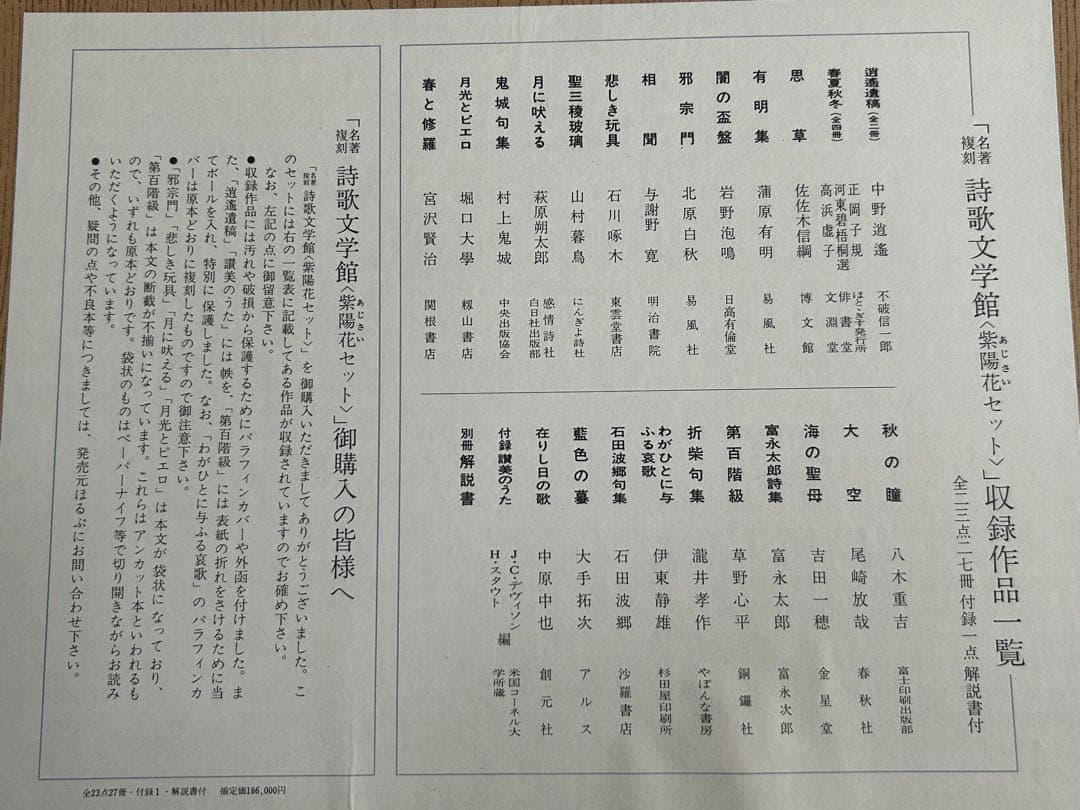 「名著複刻 詩歌文学館〈紫陽花セット〉」収録作品一覧
あじさい
全二三点二七冊 付録一点 解説書付
逍遙遺稿(全二冊) 中野逍遙 不破信一郎
春夏秋冬(全四冊) 正岡子規 河東碧梧桐選 高浜虚子 ほとゝぎす発行所 俳書堂 文淵堂
思草 佐佐木信綱 博文館
有明集 蒲原有明 易風社
闇の盃盤 岩野泡鳴 日高有倫堂
邪宗門 北原白秋 易風社
相聞 与謝野寛 明治書院
悲しき玩具 石川啄木 東雲堂書店
聖三稜玻璃 山村暮鳥 にんぎよ詩社
月に吠える 萩原朔太郎 感情詩社 白日社出版部
鬼城句集 村上鬼城 中央出版協会
月光とピエロ 堀口大學 籾山書店
春と修羅 宮沢賢治 関根書店
秋の瞳 八木重吉 富士印刷出版部
大空 尾崎放哉 春秋社
海の聖母 吉田一穂 金星堂
富永太郎詩集 富永太郎 富永次郎
第百階級 草野心平 銅鑼社
折柴句集 瀧井孝作 やぽんな書房
わがひとに与ふる哀歌 伊東静雄 杉田屋印刷所
石田波郷句集 石田波郷 沙羅書店
藍色の蟇 大手拓次 アルス
在りし日の歌 中原中也 創元社
付録 讃美のうた J・C・デヴィソン H・スタウト 編 米国コーネル大学所蔵
別冊 解説書
「名著複刻 詩歌文学館〈紫陽花セット〉」御購入の皆様へ
あじさい
「名著複刻 詩歌文学館〈紫陽花セット〉」を御購入いただきましてありがとうございました。こ
のセットには右の一覧表に記載してある作品が収録されていますのでお確め下さい。
なお、左記の点に御留意下さい。
●収録作品には汚れや破損から保護するためにパラフィンカバーや外函を付けました。ま
た、「逍遙遺稿」「讃美のうた」には帙を、「第百階級」には表紙の折れをさけるために当
てボールを入れ、特別に保護しました。なお、「わがひとに与ふる哀歌」のパラフィンカ
バーは原本どおりに複刻したものですので御注意下さい。
●「邪宗門」「悲しき玩具」「月に吠える」「月光とピエロ」は本文が袋状になっており、
「第百階級」は本文の断截が不揃いになっています。これらはアンカット本といわれるも
ので、いずれも原本どおりです。袋状のものはペーパーナイフ等で切り開きながらお読み
いただくようになっています。
●その他、疑問の点や不良本等につきましては、発売元ほるぷにお問い合わせ下さい。
全23点27冊・付録1・解説書付 揃定価186,000円